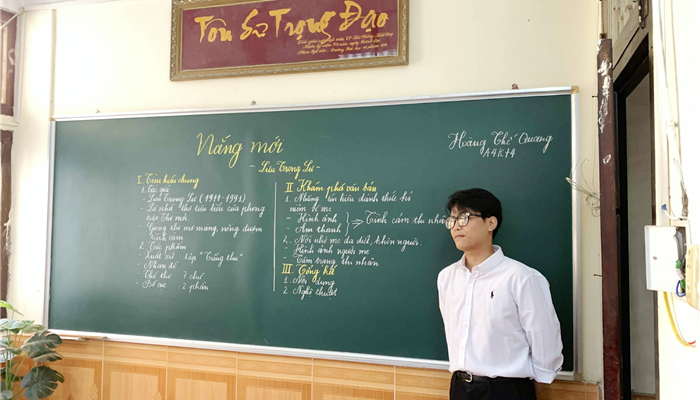 Tôn Sư Trọng Đạo
Nắng mới
- Lưu Trọng Lư -
Hoàng Thế Quang
A4K74
I. Tìm hiểu chung
1. Tác giả
- Lưu Trọng Lư (1911-1991)
- Là nhà thơ tiêu biểu của phong
trào Thơ mới.
- Giọng thơ mơ màng, nồng đượm
tình cảm
2. Tác phẩm
- Xuất xứ: tập "Tiếng thu"
- Nhan đề
- Thể thơ 7 chữ
- Bố cục 2 phần
II. Khám phá văn bản
1. Những tín hiệu đánh thức kỉ
niệm về mẹ
- Hình ảnh
- Âm thanh
⇒ Tình cảm thi nhân
2. Nỗi nhớ mẹ da diết, khôn nguôi.
- Hình ảnh người mẹ
- Tâm trạng thi nhân
III. Tổng kết
1. Nội dung
2. Nghệ thuật